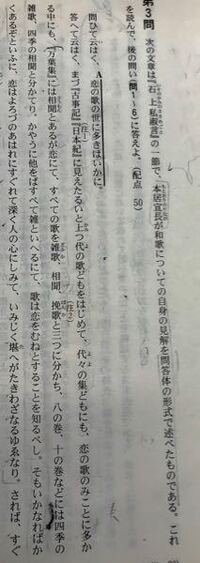 第3問 次の文章は『石上私淑言』の一節で、本居宣長が和歌についての自身の見解を問答体の形式で述べたものである。これ
を読んで、後の問い(問1〜6)に答えよ。(配点 50)
問ひて云はく、A恋の歌の世に多きはいかに。
答へて云はく、まづ『古事記』『日本紀』に見えたるいと上つ代の歌どもをはじめて、代々の集どもにも、恋の歌のみことに多か
る中にも、『万葉集』には相聞とあるが恋にて、すべての歌を雑歌、相聞、挽歌と三つに分かち、八の巻、十の巻などには四季の
雑歌、四季の相聞と分かてり。かやうに他をばすべて雑といへるにて、歌は恋をむねとすることを知るべし。そもいかなればか
くあるぞといふに、恋はよろづのあはれにすぐれて深く人の心にしみて、いみじく堪へがたきわざなるゆゑなり。されば、すぐ